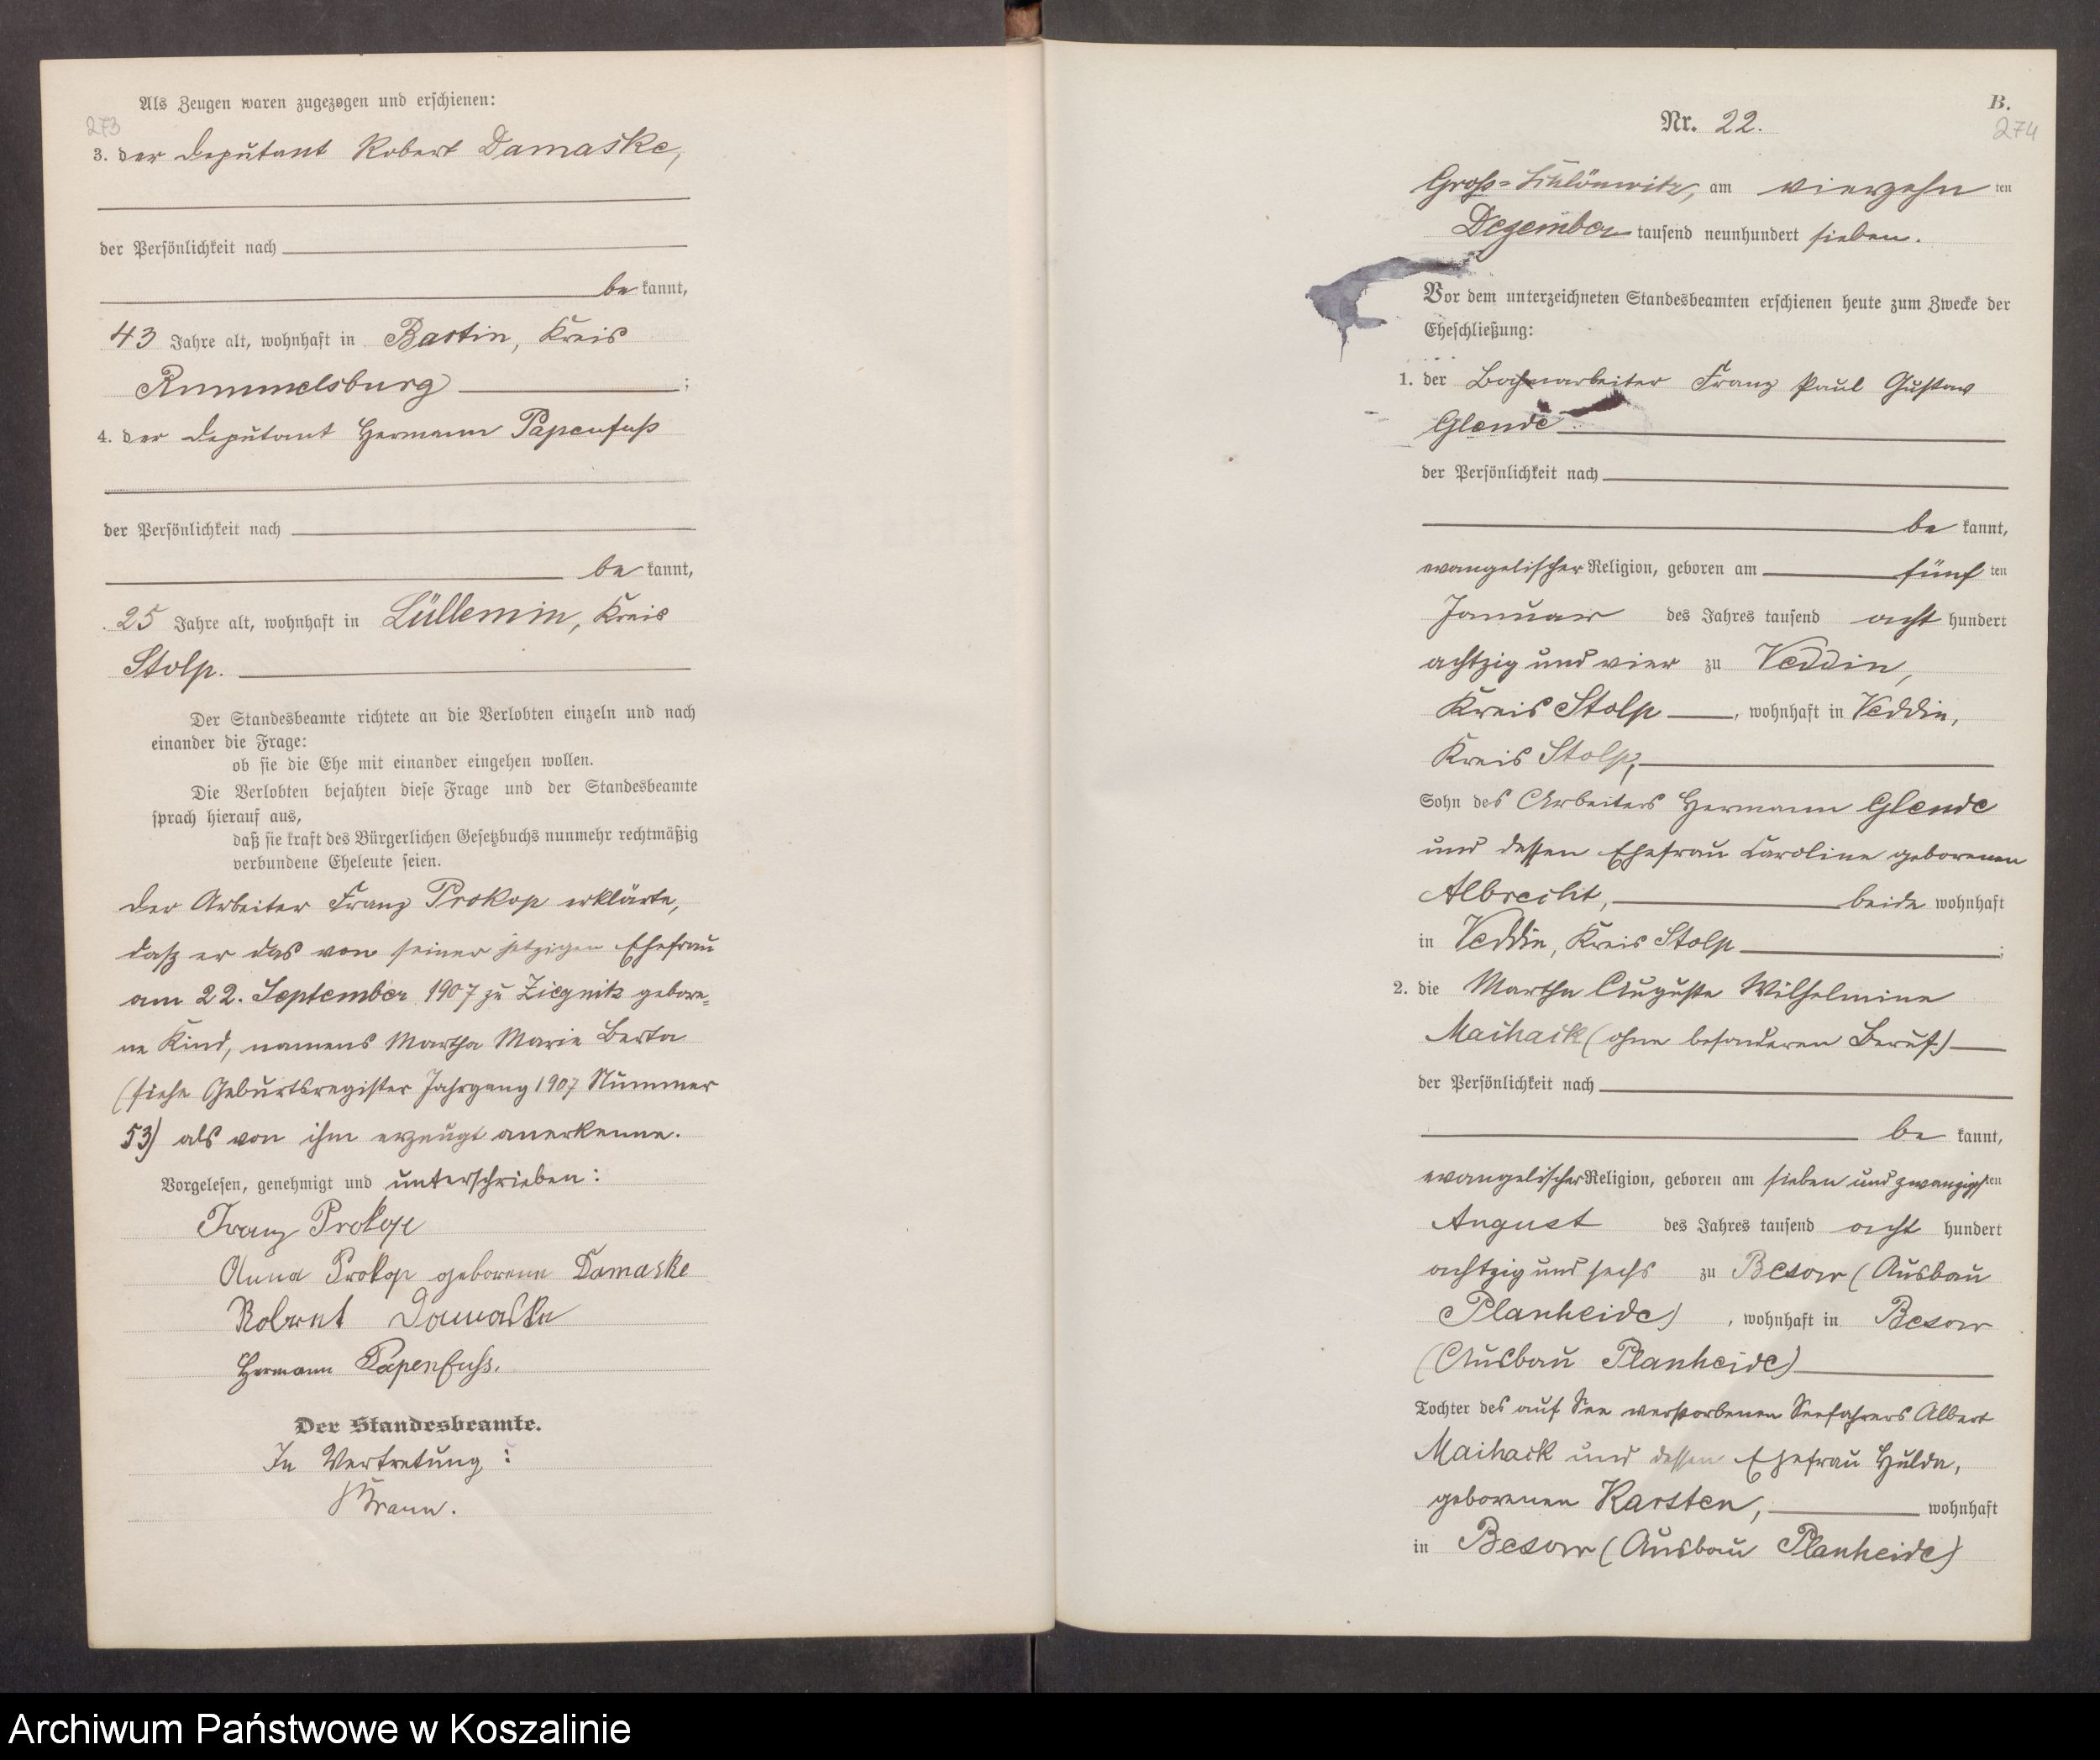 Als Zeugen waren zugezogen und erschienen:
273
3. der Deputant Robert Damaske,
der Persönlichkeit nach
be kannt,
43 Jahre alt, wohnhaft in Bartin, Kreis
Rummelsburg ;
4. der Deputant Hermann Papenfuß
der Persönlichkeit nach
be kannt,
25 Jahre alt, wohnhaft in Lüllemin, Kreis
Stolp.
Der Standesbeamte richtete an die Verlobten einzeln und nach
einander die Frage:
ob sie die Ehe mit einander eingehen wollen.
Die Verlobten bejahten diese Frage und der Standesbeamte
sprach hierauf aus,
daß sie kraft des Bürgerlichen Gesetzbuchs nunmehr rechtmäßig
verbundene Eheleute seien.
Der Arbeiter Franz Prokop erklärte,
daß er das von seiner jetzigen Ehefrau
am 22. September 1907 zu Ziegnitz gebore=
ne Kind, namens Martha Marie Berta
(siehe Geburtsregister Jahrgang 1907 Nummer
53) als von ihm erzeugt anerkenne.
Vorgelesen, genehmigt und unterschrieben:
Franz Prokop
Anna Prokop geborene Damaske
Robert Damaske
Hermann Papenfuß.
Der Standesbeamte.
In Vertretung:
B.
274
Nr. 22.
Groß=Schlönwitz, am vierzehn ten
Dezember tausend neunhundert sieben.
Vor dem unterzeichneten Standesbeamten erschienen heute zum Zwecke der
Eheschließung:
1. der Bahnarbeiter Franz Paul Gustav
Glende
der Persönlichkeit nach
be kannt,
evangelischer Religion, geboren am fünf ten
Januar des Jahres tausend acht hundert
achtzig und vier zu Veddin,
Kreis Stolp , wohnhaft in Veddin,
Kreis Stolp,
Sohn des Arbeiters Hermann Glende
und dessen Ehefrau Caroline geborenen
Albrecht, beide wohnhaft
in Veddin, Kreis Stolp ;
2. die Martha Auguste Wilhelmine
Maihack (ohne besonderen Beruf)
der Persönlichkeit nach
be kannt,
evangelischer Religion, geboren am sieben und zwanzigsten
August des Jahres tausend acht hundert
achtzig und sechs zu Besow (Ausbau
Planheide) , wohnhaft in Besow
(Ausbau Planheide)
Tochter des auf See verstorbenen Seefahrers Albert
Maihack und dessen Ehefrau Hulda,
geborenen Karsten, wohnhaft
in Besow (Ausbau Planheide)
Archiwum Państwowe w Koszalinie